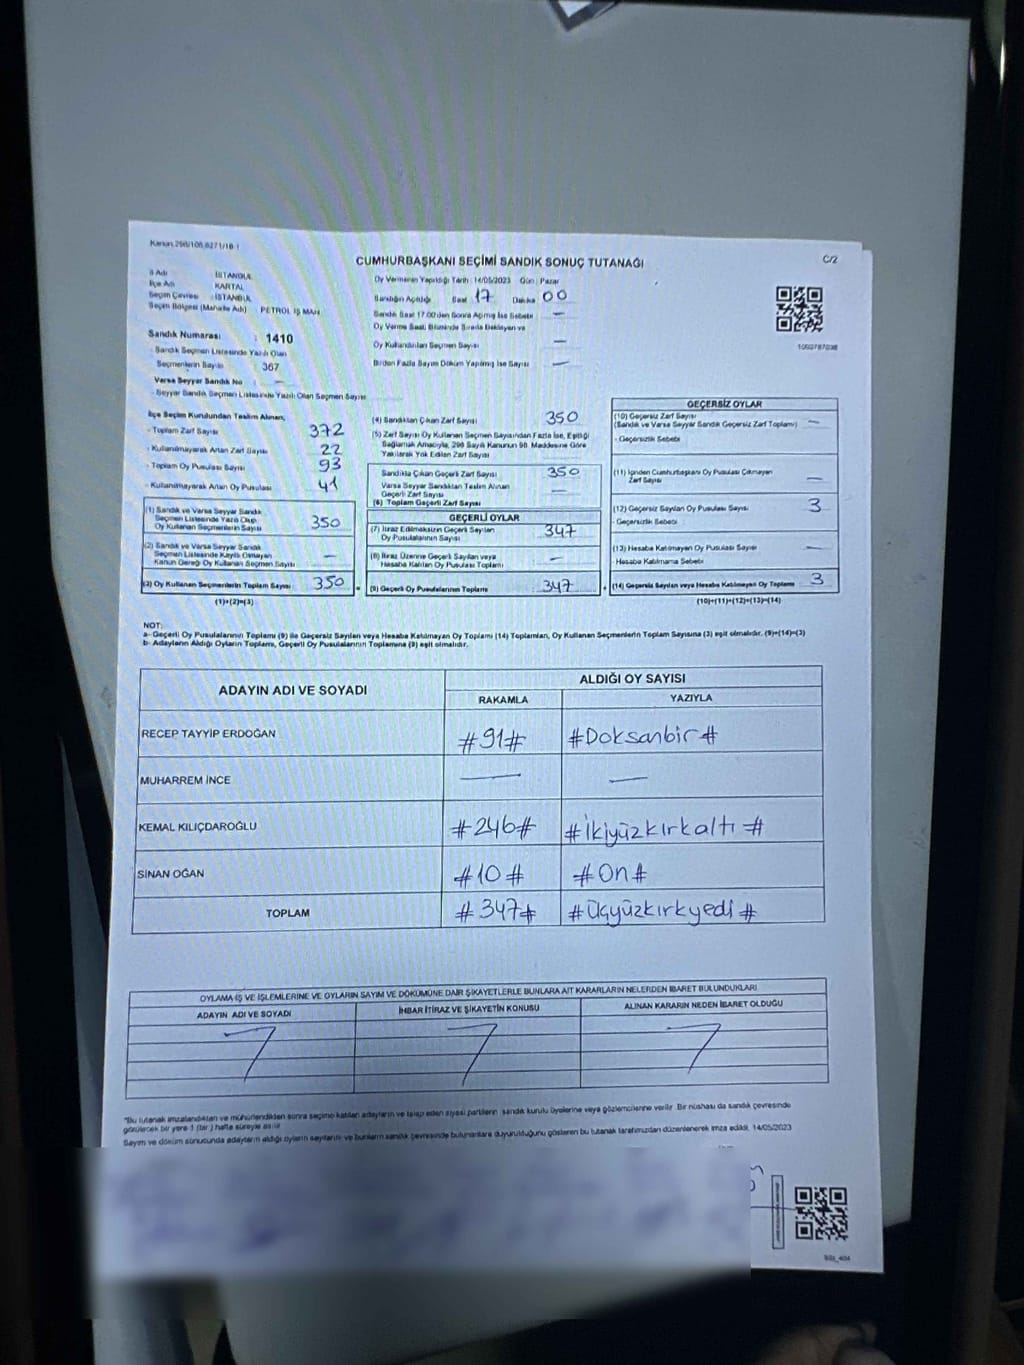 Kanun:298/106,6271/18-1
CUMHURBAŞKANI SEÇİMİ SANDIK SONUÇ TUTANAĞI
C/2
İl Adı : İSTANBUL
İlçe Adı : KARTAL
Seçim Çevresi : İSTANBUL
Seçim Bölgesi (Mahalle Adı) PETROL İŞ MAH.
Oy Vermenin Yapıldığı Tarih : 14/05/2023 Gün : Pazar
Sandığın Açıldığı Saat 17 Dakika 00
Sandık Saat 17.00'den Sonra Açılmış İse Sebebi —
Oy Verme Saati Bitiminde Sırada Bekleyen ve
Oy Kullandırılan Seçmen Sayısı —
Birden Fazla Sayım Döküm Yapılmış İse Sayısı —
Sandık Numarası : 1410
- Sandık Seçmen Listesinde Yazılı Olan
Seçmenlerin Sayısı 367
Varsa Seyyar Sandık No : —
- Seyyar Sandık Seçmen Listesinde Yazılı Olan Seçmen Sayısı
İlçe Seçim Kurulundan Teslim Alınan;
- Toplam Zarf Sayısı 372
- Kullanılmayarak Artan Zarf Sayısı 22
- Toplam Oy Pusulası Sayısı 93
- Kullanılmayarak Artan Oy Pusulası 41
(1) Sandık ve Varsa Seyyar Sandık
Seçmen Listesinde Yazılı Olup
Oy Kullanan Seçmenlerin Sayısı 350
(2) Sandık ve Varsa Seyyar Sandık
Seçmen Listesinde Kayıtlı Olmayan
Kanun Gereği Oy Kullanan Seçmen Sayısı —
(3) Oy Kullanan Seçmenlerin Toplam Sayısı 350
(1)+(2)=(3)
(4) Sandıktan Çıkan Zarf Sayısı 350
(5) Zarf Sayısı Oy Kullanan Seçmen Sayısından Fazla İse, Eşitliği
Sağlamak Amacıyla, 298 Sayılı Kanunun 98. Maddesine Göre
Yakılarak Yok Edilen Zarf Sayısı
Sandıkta Çıkan Geçerli Zarf Sayısı 350
Varsa Seyyar Sandıktan Teslim Alınan
Geçerli Zarf Sayısı —
(6) Toplam Geçerli Zarf Sayısı
GEÇERLİ OYLAR
(7) İtiraz Edilmeksizin Geçerli Sayılan
Oy Pusulalarının Sayısı 347
(8) İtiraz Üzerine Geçerli Sayılan veya
Hesaba Katılan Oy Pusulası Toplamı —
(9) Geçerli Oy Pusulalarının Toplamı 347
GEÇERSİZ OYLAR
(10) Geçersiz Zarf Sayısı
(Sandık ve Varsa Seyyar Sandık Geçersiz Zarf Toplamı) —
- Geçersizlik Sebebi
(11) İçinden Cumhurbaşkanı Oy Pusulası Çıkmayan
Zarf Sayısı —
(12) Geçersiz Sayılan Oy Pusulası Sayısı 3
- Geçersizlik Sebebi
(13) Hesaba Katılmayan Oy Pusulası Sayısı —
Hesaba Katılmama Sebebi
(14) Geçersiz Sayılan veya Hesaba Katılmayan Oy Toplamı 3
(10)+(11)+(12)+(13)=(14)
NOT:
a- Geçerli Oy Pusulalarının Toplamı (9) ile Geçersiz Sayılan veya Hesaba Katılmayan Oy Toplamı (14) Toplamları, Oy Kullanan Seçmenlerin Toplam Sayısına (3) eşit olmalıdır. (9)+(14)=(3)
b- Adayların Aldığı Oyların Toplamı, Geçerli Oy Pusulalarının Toplamına (9) eşit olmalıdır.
ADAYIN ADI VE SOYADI
ALDIĞI OY SAYISI
RAKAMLA YAZIYLA
RECEP TAYYİP ERDOĞAN #91# #Doksanbir#
MUHARREM İNCE — —
KEMAL KILIÇDAROĞLU #246# #ikiyüzkırkaltı#
SİNAN OĞAN #10# #On#
TOPLAM #347# #Üçyüzkırkyedi#
OYLAMA İŞ VE İŞLEMLERİNE VE OYLARIN SAYIM VE DÖKÜMÜNE DAİR ŞİKAYETLERLE BUNLARA AİT KARARLARIN NELERDEN İBARET BULUNDUKLARI
ADAYIN ADI VE SOYADI İHBAR İTİRAZ VE ŞİKAYETİN KONUSU ALINAN KARARIN NEDEN İBARET OLDUĞU
*Bu tutanak imzalandıktan ve mühürlendikten sonra seçime katılan adayların ve talep eden siyasi partilerin sandık kurulu üyelerine veya gözlemcilerine verilir. Bir nüshası da sandık çevresinde
görülecek bir yere 1 (bir) hafta süreyle asılır.
Sayım ve döküm sonucunda adayların aldığı oyların sayılarını ve bunların sandık çevresinde bulunanlara duyurulduğunu gösteren bu tutanak tarafımızdan düzenlenerek imza edildi. 14/05/2023